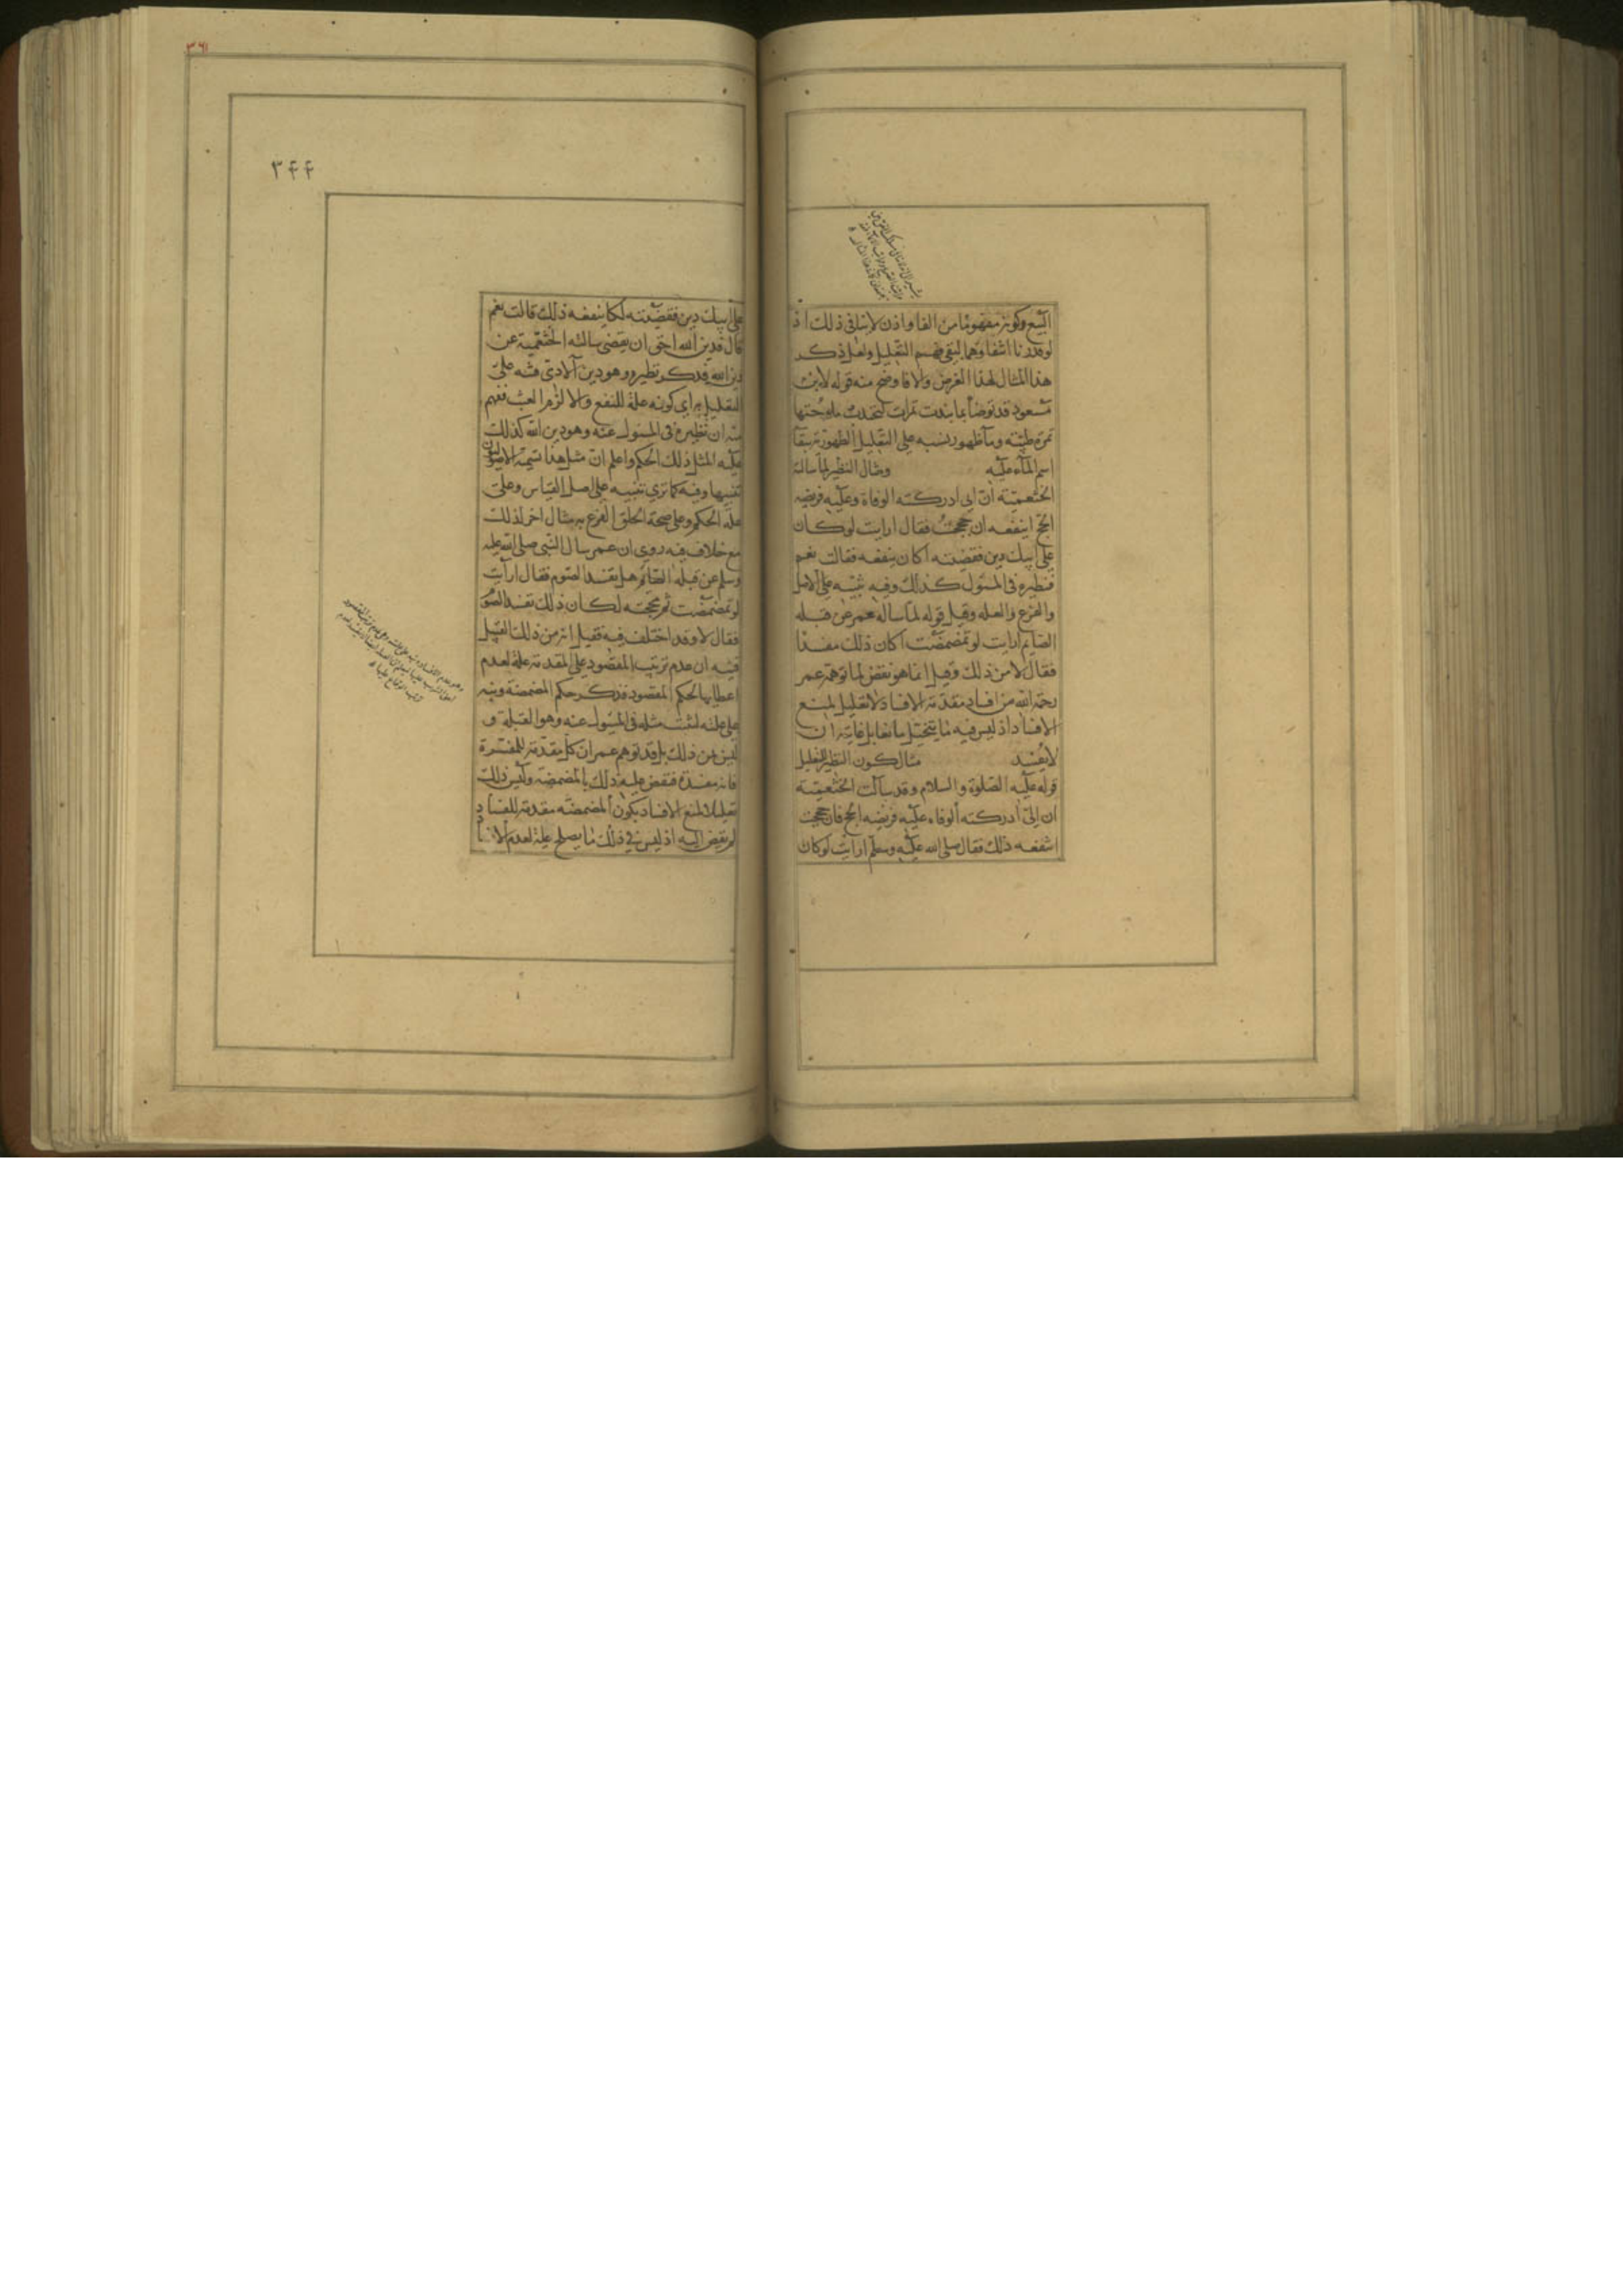 البيع وكونه مفهوما من الفا واذن لا ينافى ذلك اذ
لو قدرنا انتفاوهما لبقى فهم التعليل ولعل ذكر
هذا المثال لهذا الغرض والا فاوضح منه قوله لابن
مسعود قد توضأ بما نبذت تمرات لتجذب ملوحتها
تمرة طيبة وماء طهور ينبه على التعليل الطهورية ببقا
اسم الماء عليه ومثال النظير لما سالته
الخثعمية ان ابى ادركته الوفاة وعليه فريضه
الحج اينفعه ان حججت فقال ارايت لو كان
على ابيك دين فقضيته اكان ينفعه فقالت نعم
فنظيره فى المسئول كذلك وفيه تنبيه على الاصل
والفرع والعله وقيل قوله لما ساله عمر عن قبله
الصايم ارايت لو تمضمضت اكان ذلك مفسدا
فقال لا من ذلك وقيل انما هو نقض لما توهمه عمر
رحمه الله من افساد مقدمة الافساد لا تعليل لمنع
الافساد اذ ليس فيه ما يتخيل مانعا بل غايته ان
لا يفسد مثال كون النظير للتعليل
قوله عليه الصلوة والسلام وقد سالت الخثعمية
ان ابى ادركته الوفاه عليه فريضه الحج فان حججت
اينفعه ذلك فقال صلى الله عليه وسلم ارايت لو كان
٣٦١
٣۴۴
على ابيك دين فقضيته لكا ينفعه ذلك قالت نعم
قال فدين الله احق ان يقضى سالته الخثعمية عن
دين الله فذكر نظيره وهو دين الادمى فنبه على
التعليل به اى كونه علة للنفع والا لزم العبث ففهم
منه ان نظيره فى المسئول عنه وهو دين الله كذلك
عليه المثل ذلك الحكم واعلم ان مثل هذا تسميه الاصوليون
تنبيها وفيه كما ترى تنبيه على اصل القياس وعلى
علة الحكم وعلى صحة الحاق الفرع به مثال اخر لذلك
مع خلاف فيه روى ان عمر سال النبى صلى الله عليه
وسلم عن قبله الصائم هل تفسد الصوم فقال ارايت
لو تمضمضت ثم مججته لكان ذلك تفسد الصوم
فقال لا وقد اختلف فيه فقيل انه من ذلك القبيل
فنبه ان عدم ترتيب المقصود على المقدمة علة لعدم
اعطايها لحكم المقصود فذكر حكم المضمضة ونبه
على علته ليثبت مثله فى المسئول عنه وهو القبلة و
ليس من ذلك بل قد توهم عمر ان كل مقدمة للمفسدة
فانه مفسدة فنقض عليه ذلك بالمضمضة وليس ذلك
تعليلا لمنع الافساد بكون المضمضة مقدمة للفساد
لم يفض اليه اذ ليس فى ذلك ما يصلح علة لعدم الافساد